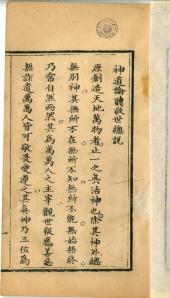 神道論贖救世總說
原創造天地萬物者止一之真活神也除其神外總
無別神其無所不在無所不知無所不能無始無終
乃常自然而然其為萬萬人之主宰觀世報應善惡
無詐遺萬萬人皆可敬畏愛尊之其真神乃三位為